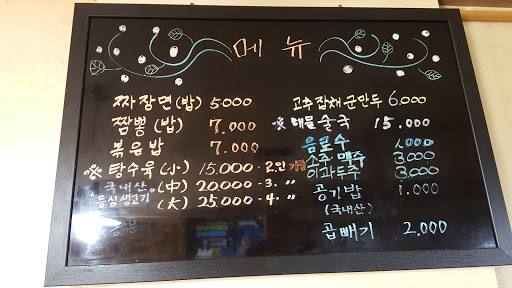 메뉴
짜장면(밥) 5000
짬뽕(밥) 7.000
볶음밥 7.000
※ 탕수육(小) 15.000 - 2인 기준
국내산 (中) 20.000 - 3. 〃
등심생고기 (大) 25.000 - 4. 〃
고추잡채군만두 6.000
※ 해물술국 15.000
음료수 1.000
소주 맥주 3.000
이과두주 3.000
공기밥 1.000
(국내산)
곱빼기 2.000